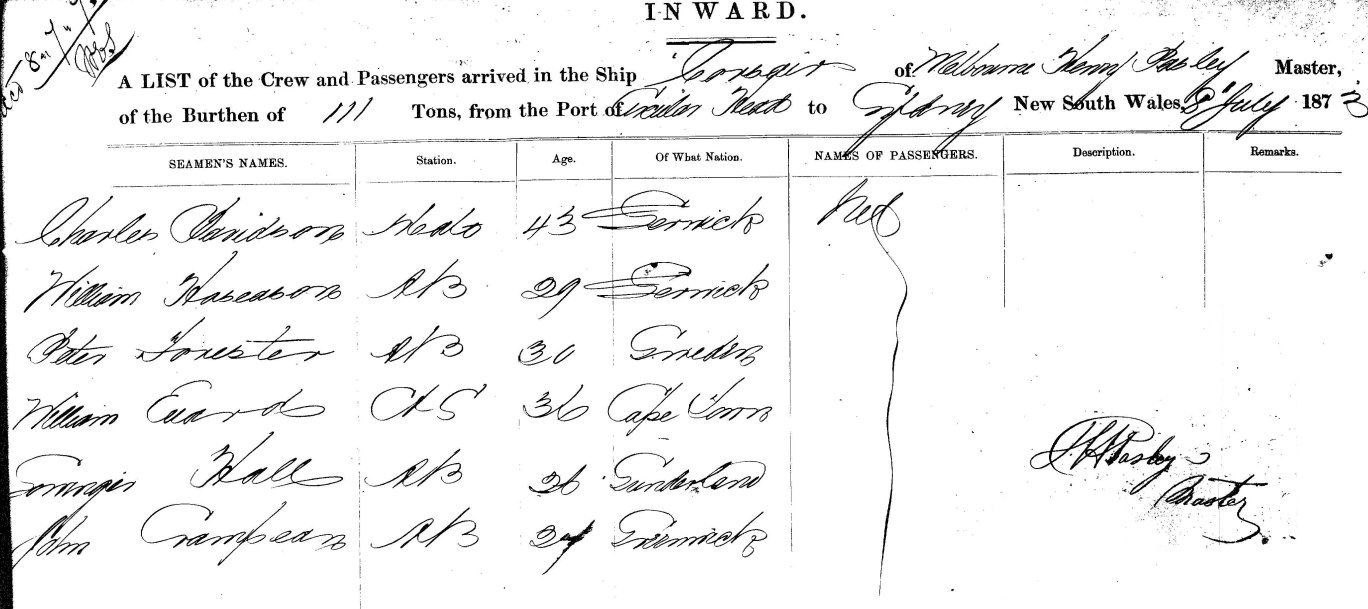 INWARD.
A LIST of the Crew and Passengers arrived in the Ship Corsair of Melbourne Henry Pasley Master,
of the Burthen of 111 Tons, from the Port of Circular Head to Sydney New South Wales, 8" July 1873
SEAMEN'S NAMES. Station. Age. Of What Nation. NAMES OF PASSENGERS. Description. Remarks.
Charles Davidson 43 Lerwick
William Haseason AB 29 Lerwick
Peter Forester AB 30 Sweden
William C&S 36 Cape Town
Hall AB 26 Sunderland
John AB
J. H. Pasley
Master